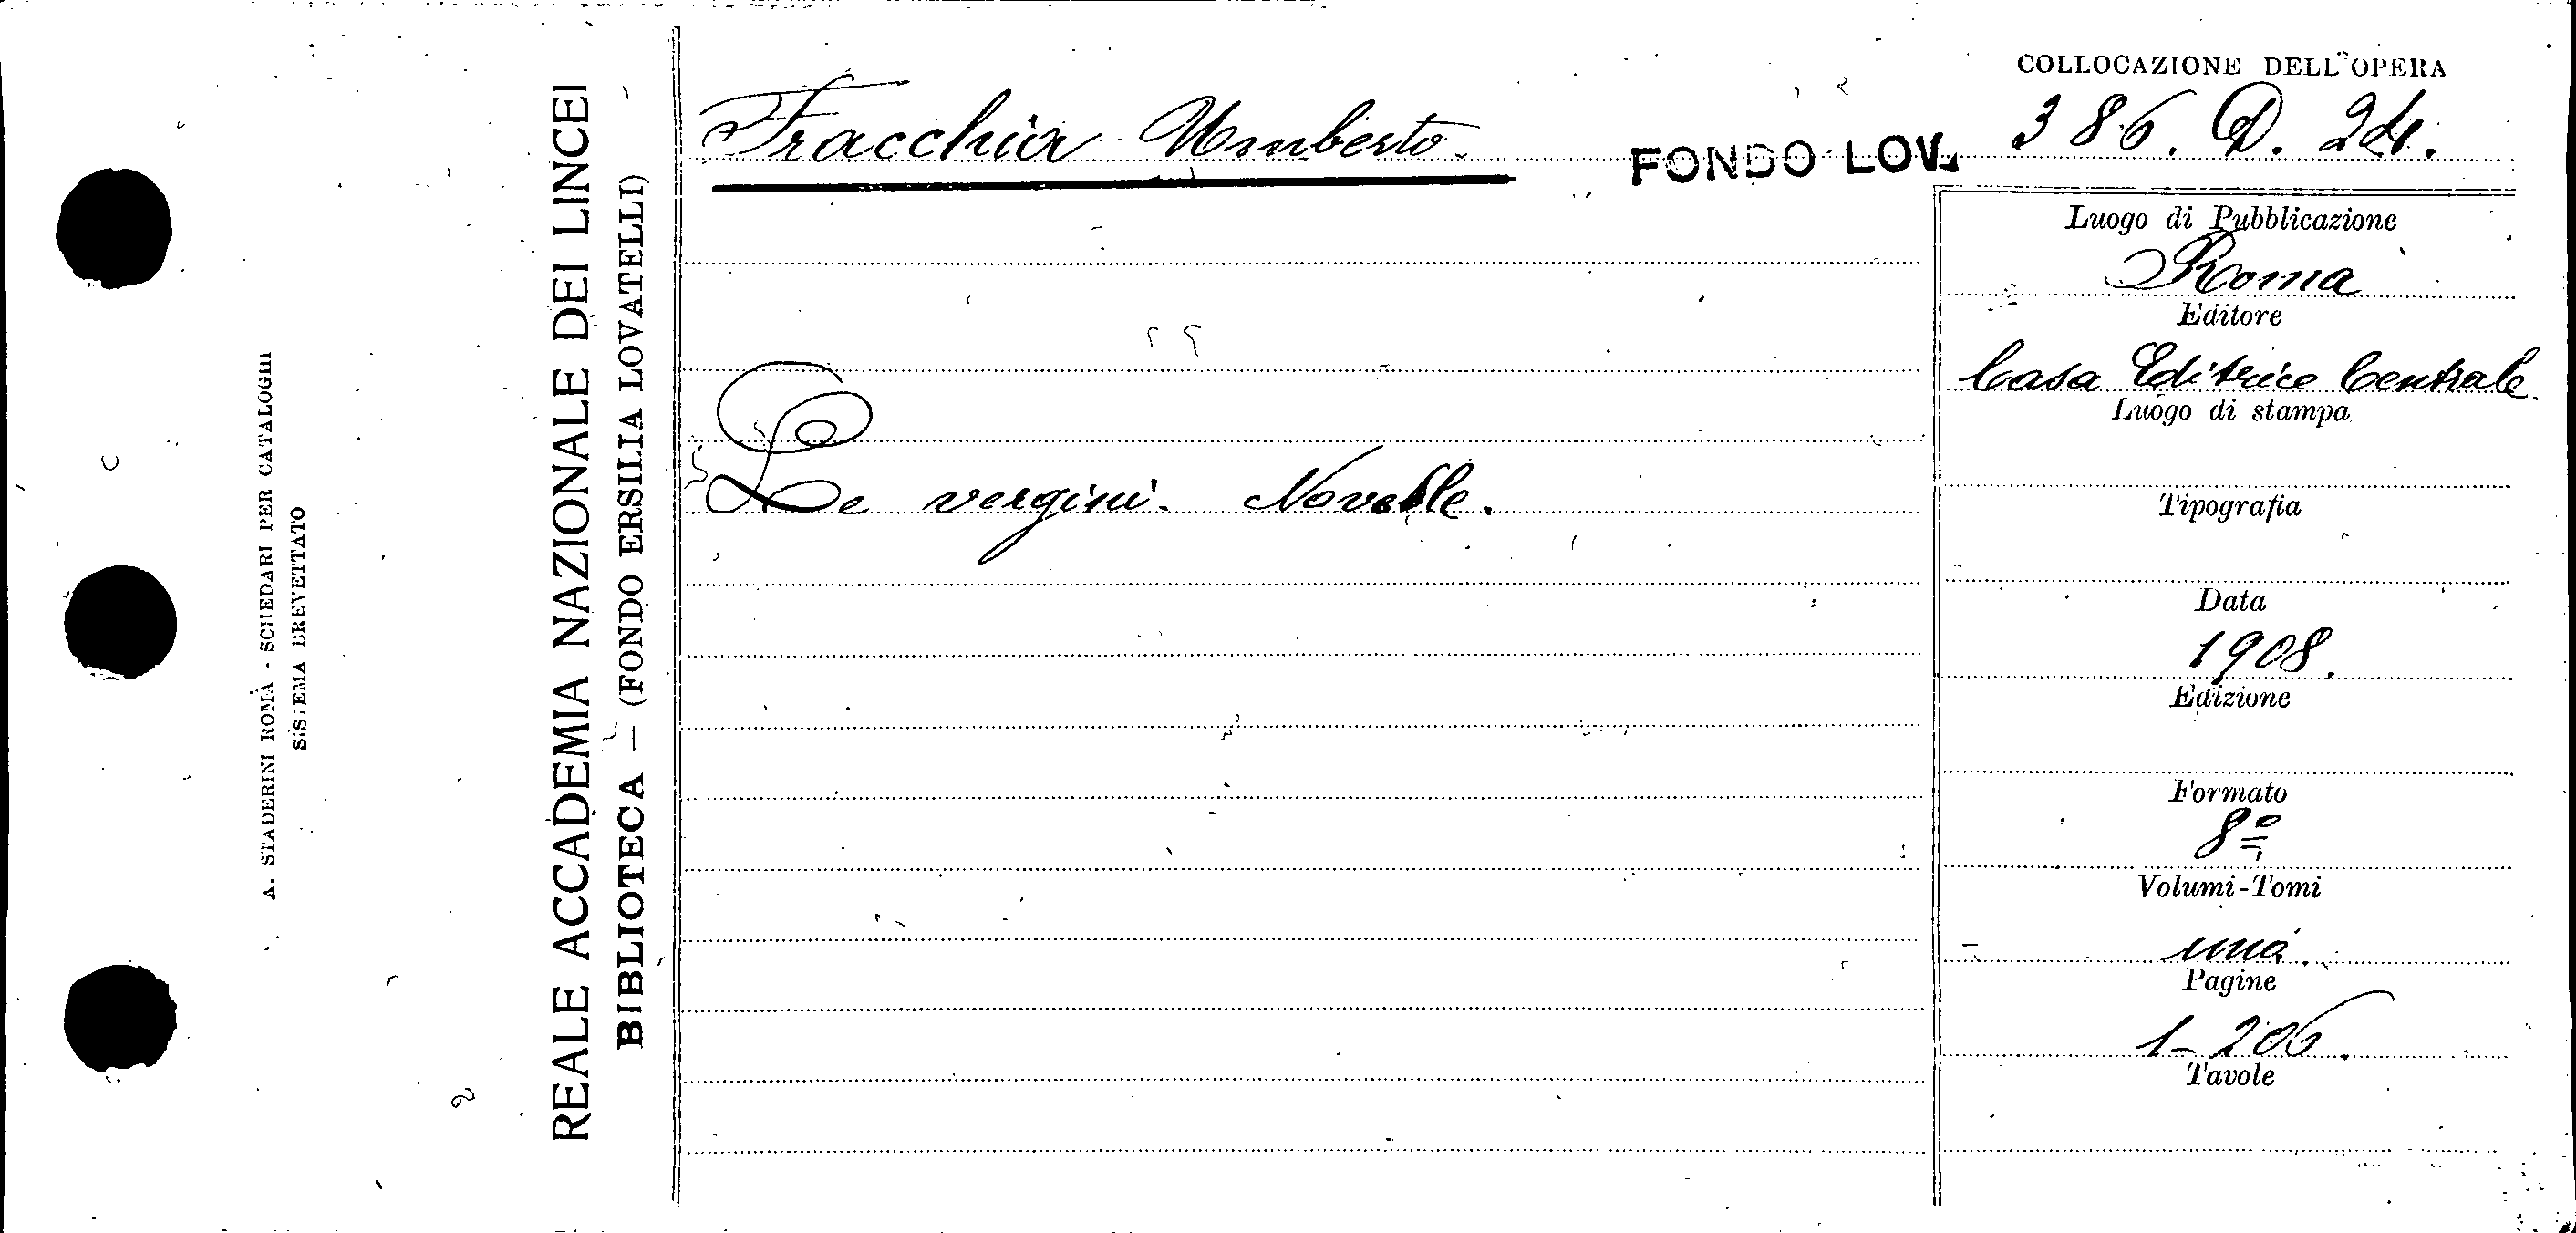 A. STADERINI ROMA - SCHEDARI PER CATALOGHI
SISTEMA BREVETTATO
REALE ACCADEMIA NAZIONALE DEI LINCEI
BIBLIOTECA — (FONDO ERSILIA LOVATELLI)
Fracchia Umberto
FONDO LOV.
Le vergini. Novelle.
COLLOCAZIONE DELL'OPERA
386. D. 24.
Luogo di Pubblicazione
Roma
Editore
Casa Editrice Centrale.
Luogo di stampa
Tipografia
Data
1908.
Edizione
Formato
8º
Volumi-Tomi
uno.
Pagine
1-206.
Tavole